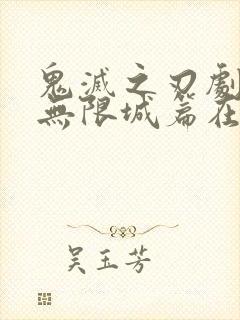 鬼滅之刃劇
無限城篇在
吴玉芳